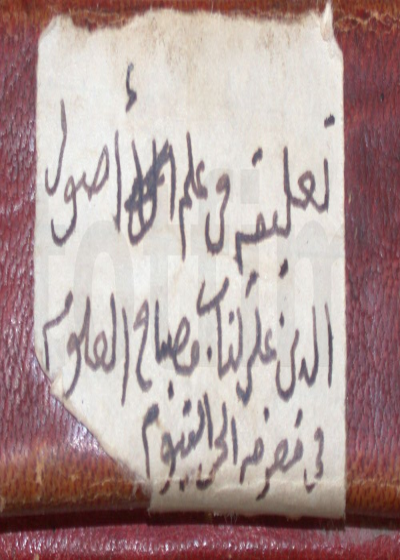 تعليقه في علم أصول
الدين على كتاب مصباح العلوم
في معرفه الحي القيوم